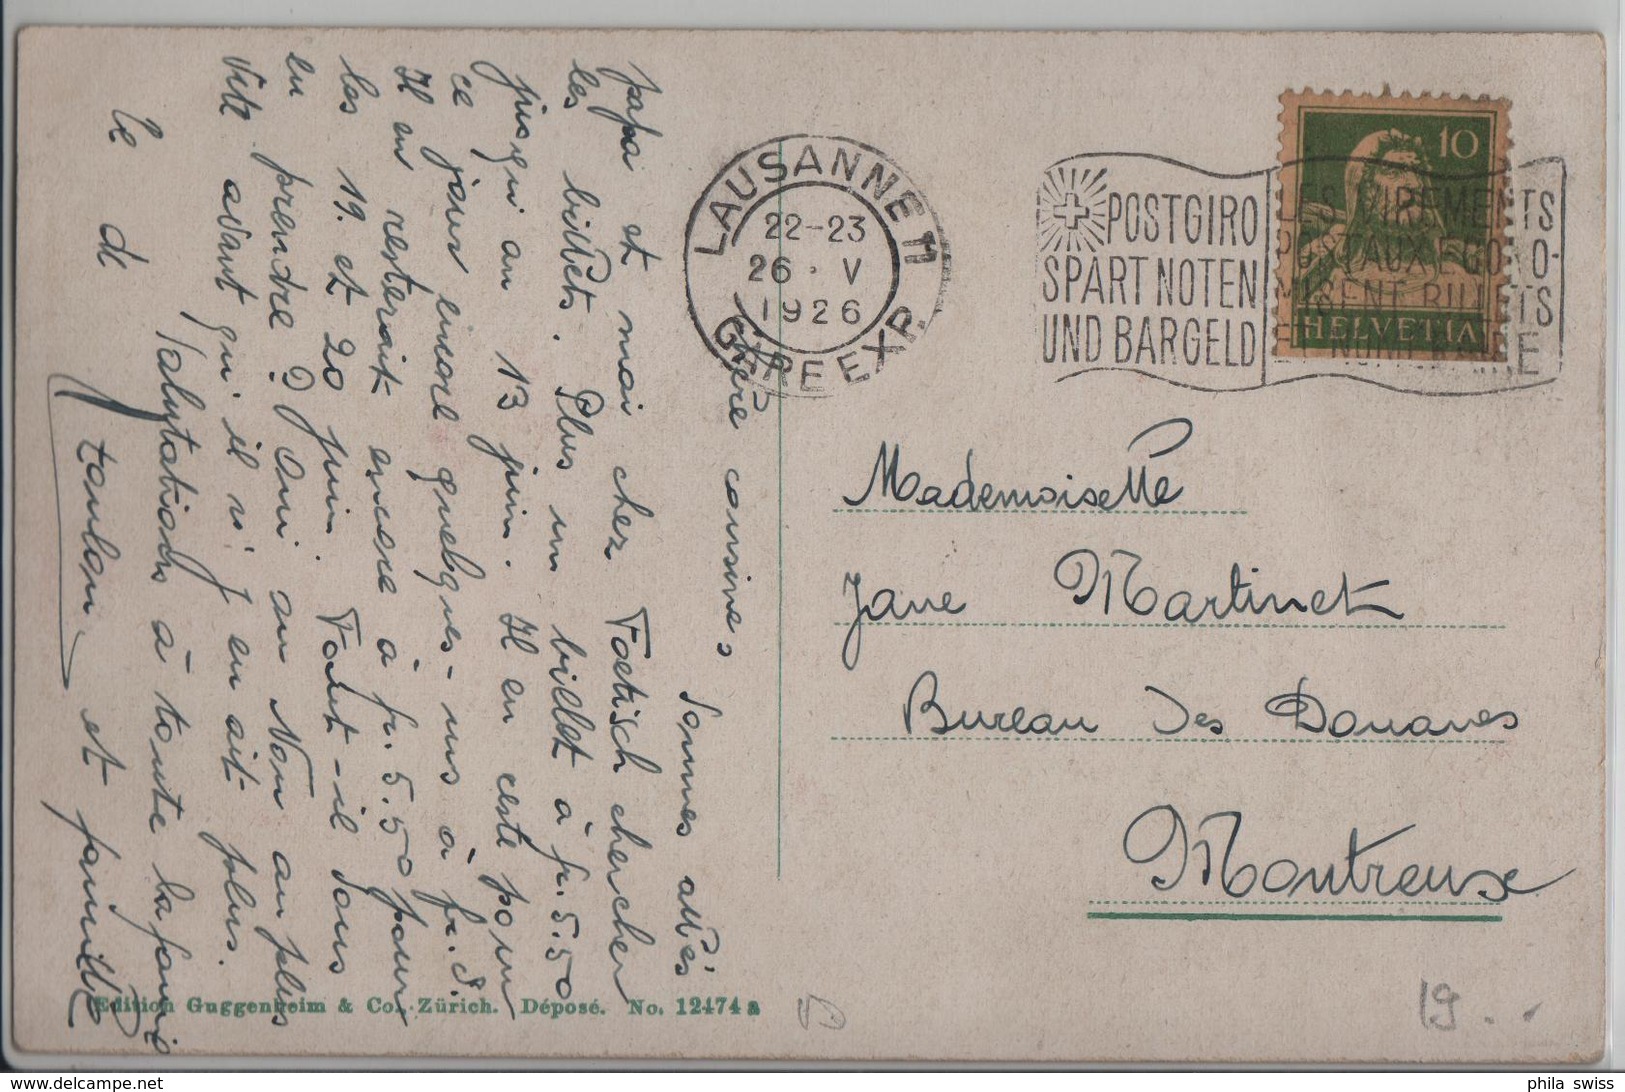 Chère cousine,
Sommes allés
papa et moi chez Foetisch chercher
les billets. Plus un billet à fr. 5.50
jusqu'au 13 juin. Il en reste pour
ce jour encore quelques-uns à fr. 8.
Il en resterait encore à fr. 5.50 pour
les 19 et 20 juin. Faut-il vous
en prendre? Oui ou Non au plus
vite avant qu'il n'y en ait plus.
Salutations à toute la famille
et famille
LAUSANNE 11
22-23
26 · V
1926
GARE EXP.
POSTGIRO
SPART NOTEN
UND BARGELD
LES VIREMENTS
POSTAUX ECONO-
MISENT BILLETS
ET NUMERAIRE
10
HELVETIA
Mademoiselle
Jane Martinet
Bureau des Douanes
Montreux
Edition Guggenheim & Co., Zürich. Déposé. No. 12474 a
19.-
phila swiss